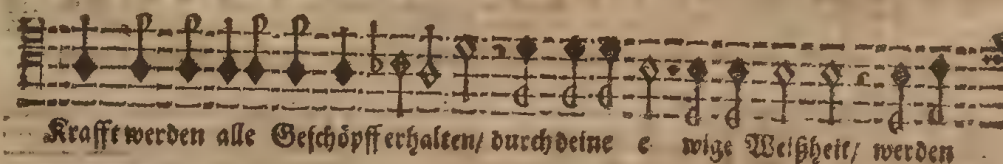 Krafft werden alle Geschöpff erhalten/ durch deine e wige Weißheit/ werden